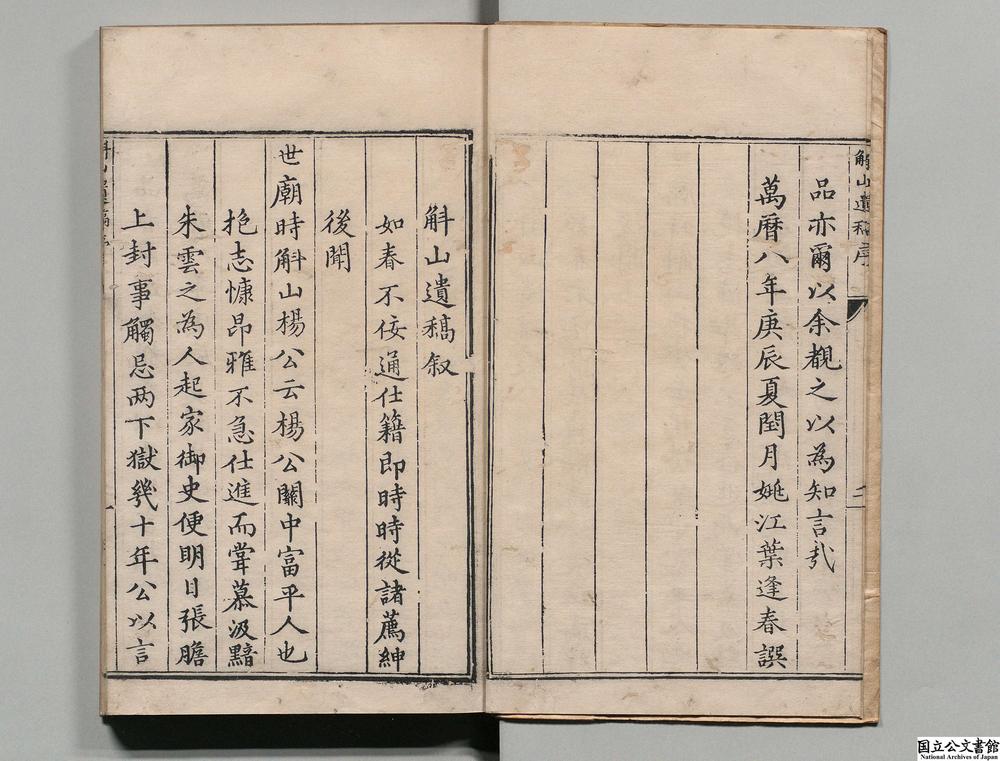 觧山遺稿序
二
品亦爾以余觀之以為知言哉
萬曆八年庚辰夏閏月姚江葉逢春譔
斛山遺稿叙
如春不佞通仕籍即時時從諸薦紳
後聞
世廟時斛山楊公云楊公關中富平人也
抱志慷昂雅不急仕進而甞慕汲黯
朱雲之為人起家御史便明目張膽
上封事觸忌两下獄幾十年公以言
一
国立公文書館
National Archives of Japan